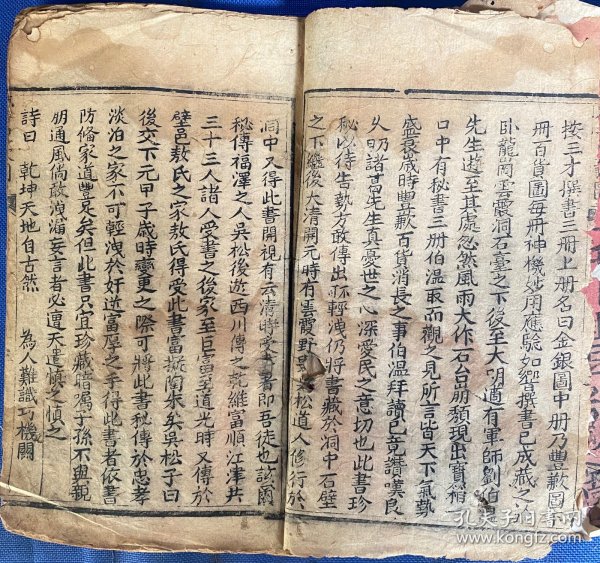 按三才撰書三冊上冊名曰金銀圖中冊乃豐歉圖下
冊百貨圖每冊神機妙用應驗如響撰書已成藏之於
臥龍崗雲霞洞石臺之下後至大明適有軍師劉伯溫
先生遊至其處忽然風雨大作石台崩頹現出寶箱
口中有秘書三冊伯溫取而觀之見所言皆天下氣勢
盛衰歲時豐歉百貨消長之事伯溫拜讀已竟讚嘆良
久曰諸葛先生真憂世之心深愛民之意切也此書珍
秘以待告熟方敢傳出不輕洩仍將書藏於洞中石壁
之下後大清開元時有雲霞野 松道人修行於
洞中又得此書開視有云清時受書者即吾徒也該爾
秘傳福澤之人吳松後遊西川傳之乾維富順江津共
三十三人諸人受書之後家至巨富至道光時又傳於
璧邑敖氏之家敖氏得受此書富擬陶朱矣吳松子曰
後交下元甲子歲時變更之際可將此書秘傳於忠孝
淡泊之家不可輕洩於奸逆富厚之手得此書者依書
防備家道豐足矣但此書只宜珍藏暗囑子孫不與親
朋通風倘敢洩漏妄言者必遭天譴慎之慎之
詩曰 乾坤天地自古然 為人難識巧機關
孔夫子旧书网
www.kongfz.com